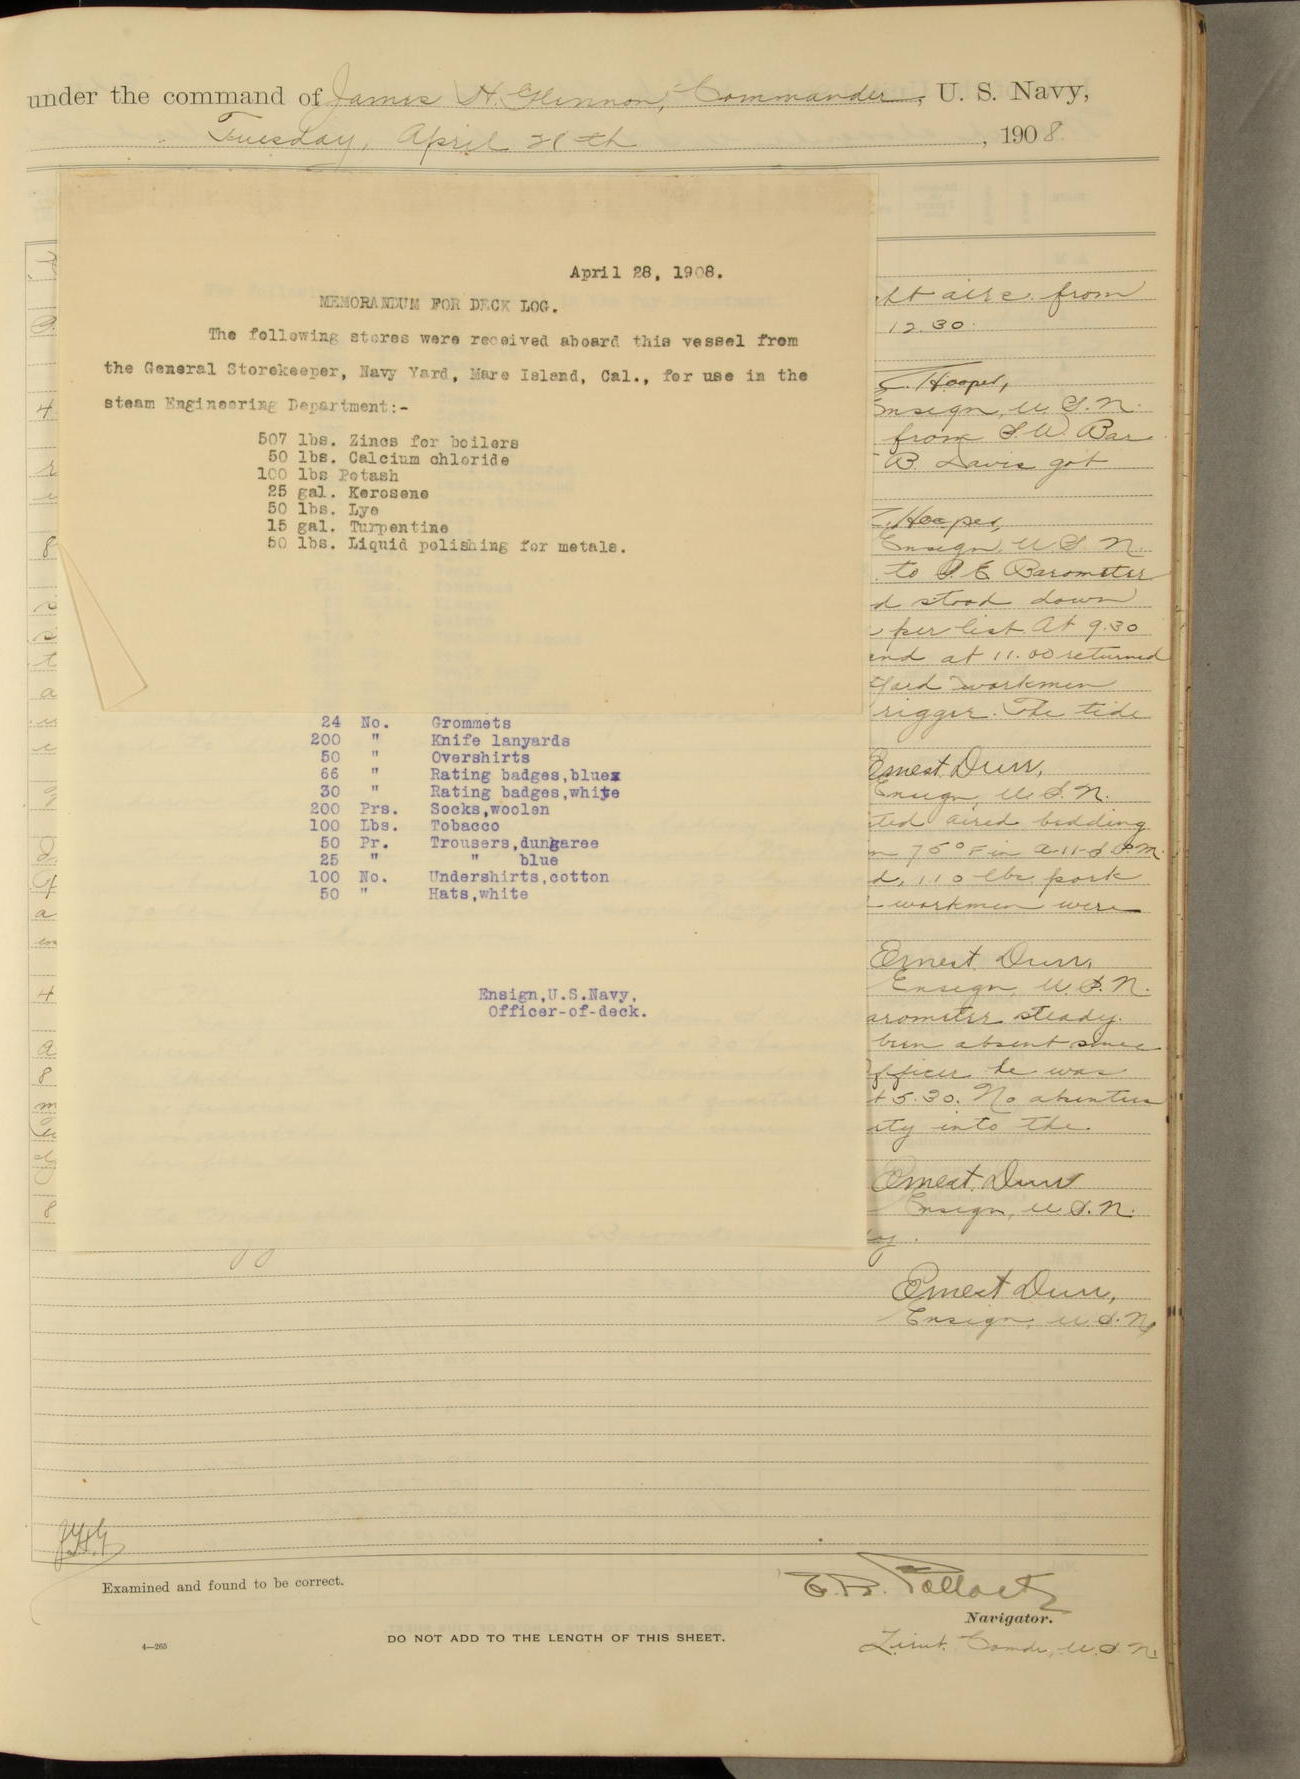 under the command of James H. Glennon, Commander, U. S. Navy,
Tuesday, April 28th, 1908
April 28, 1908.
MEMORANDUM FOR DECK LOG.
The following stores were received aboard this vessel from
the General Storekeeper, Navy Yard, Mare Island, Cal., for use in the
steam Engineering Department:-
507 lbs. Zincs for boilers
50 lbs. Calcium chloride
100 lbs Potash
25 gal. Kerosene
50 lbs. Lye
15 gal. Turpentine
50 lbs. Liquid polishing for metals.
24 No. Grommets
200 " Knife lanyards
50 " Overshirts
66 " Rating badges,blue
30 " Rating badges,white
200 Prs. Socks,woolen
100 Lbs. Tobacco
50 Pr. Trousers,dungaree
25 " " blue
100 No. Undershirts,cotton
50 " Hats,white
Ensign,U.S.Navy,
Officer-of-deck.
airs from
12.30.
Hooper,
Ensign, U.S.N.
from S.W. Bar
B. Davis got
Hooper,
Ensign, U.S.N.
to S.E. Barometer
stood down
per list. At 9.30
and at 11.00 returned
Yard workmen
rigger. The tide
Ernest Durr,
Ensign, U.S.N.
aired bedding
75° F in
110 lbs pork
workmen were
Ernest Durr,
Ensign, U.S.N.
steady.
been absent since
Officer he was
5.30. No absentees
into the
Ernest Durr
Ensign, U.S.N.
Ernest Durr,
Ensign, U.S.N.
J.H.G
Examined and found to be correct.
E.R. Pollock
Navigator.
4—265
DO NOT ADD TO THE LENGTH OF THIS SHEET.
Lieut. Comdr, U.S.N.